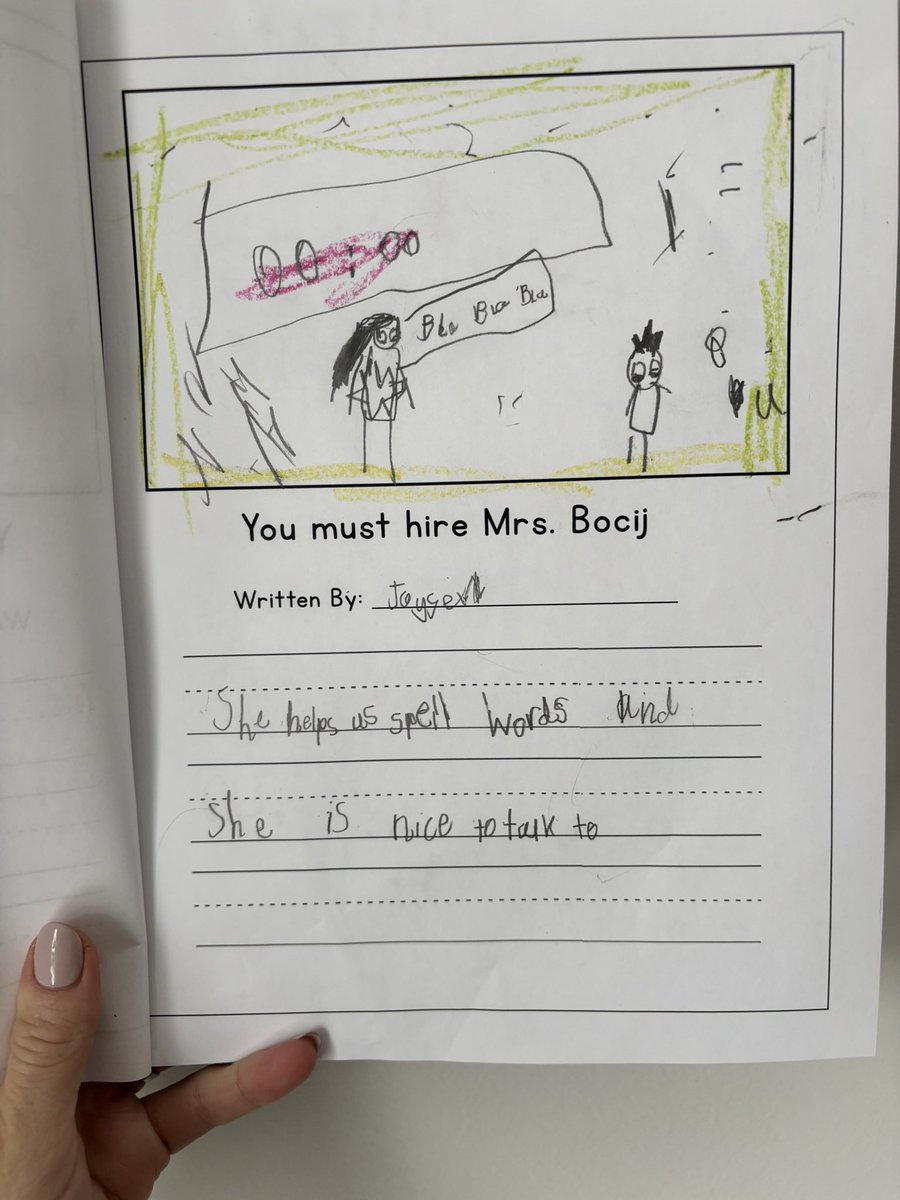 00:00
Bla Bla Bla
You must hire Mrs. Bocij
Written By:
She helps us spell words And
She is nice to talk to